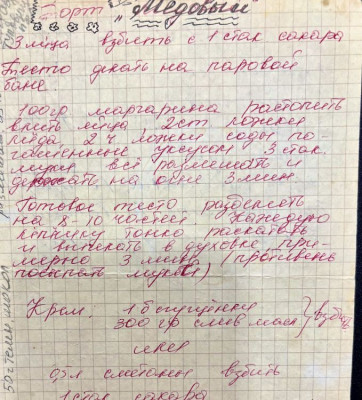 Торт „Медовый"
3 яйца взбить с 1 стак сахара
Тесто делать на паровой
бане.
100 гр маргарина растопить
влить яйца, 2 ст ложки
мёда 2 ч ложки соды по-
гашенные уксусом 3 стак.
муки всё размешать и
держать на огне 3 мин.
Готовое тесто разделить
на 8-10 частей каждую
лепёшку тонко раскатать
и выпекать в духовке при-
мерно 3 мин (противень
посыпать мукой)
Крем. 1 б сгущёнки
300 гр слив масл } взбить
или
0,5 л сметаны взбить
1 стак сахара